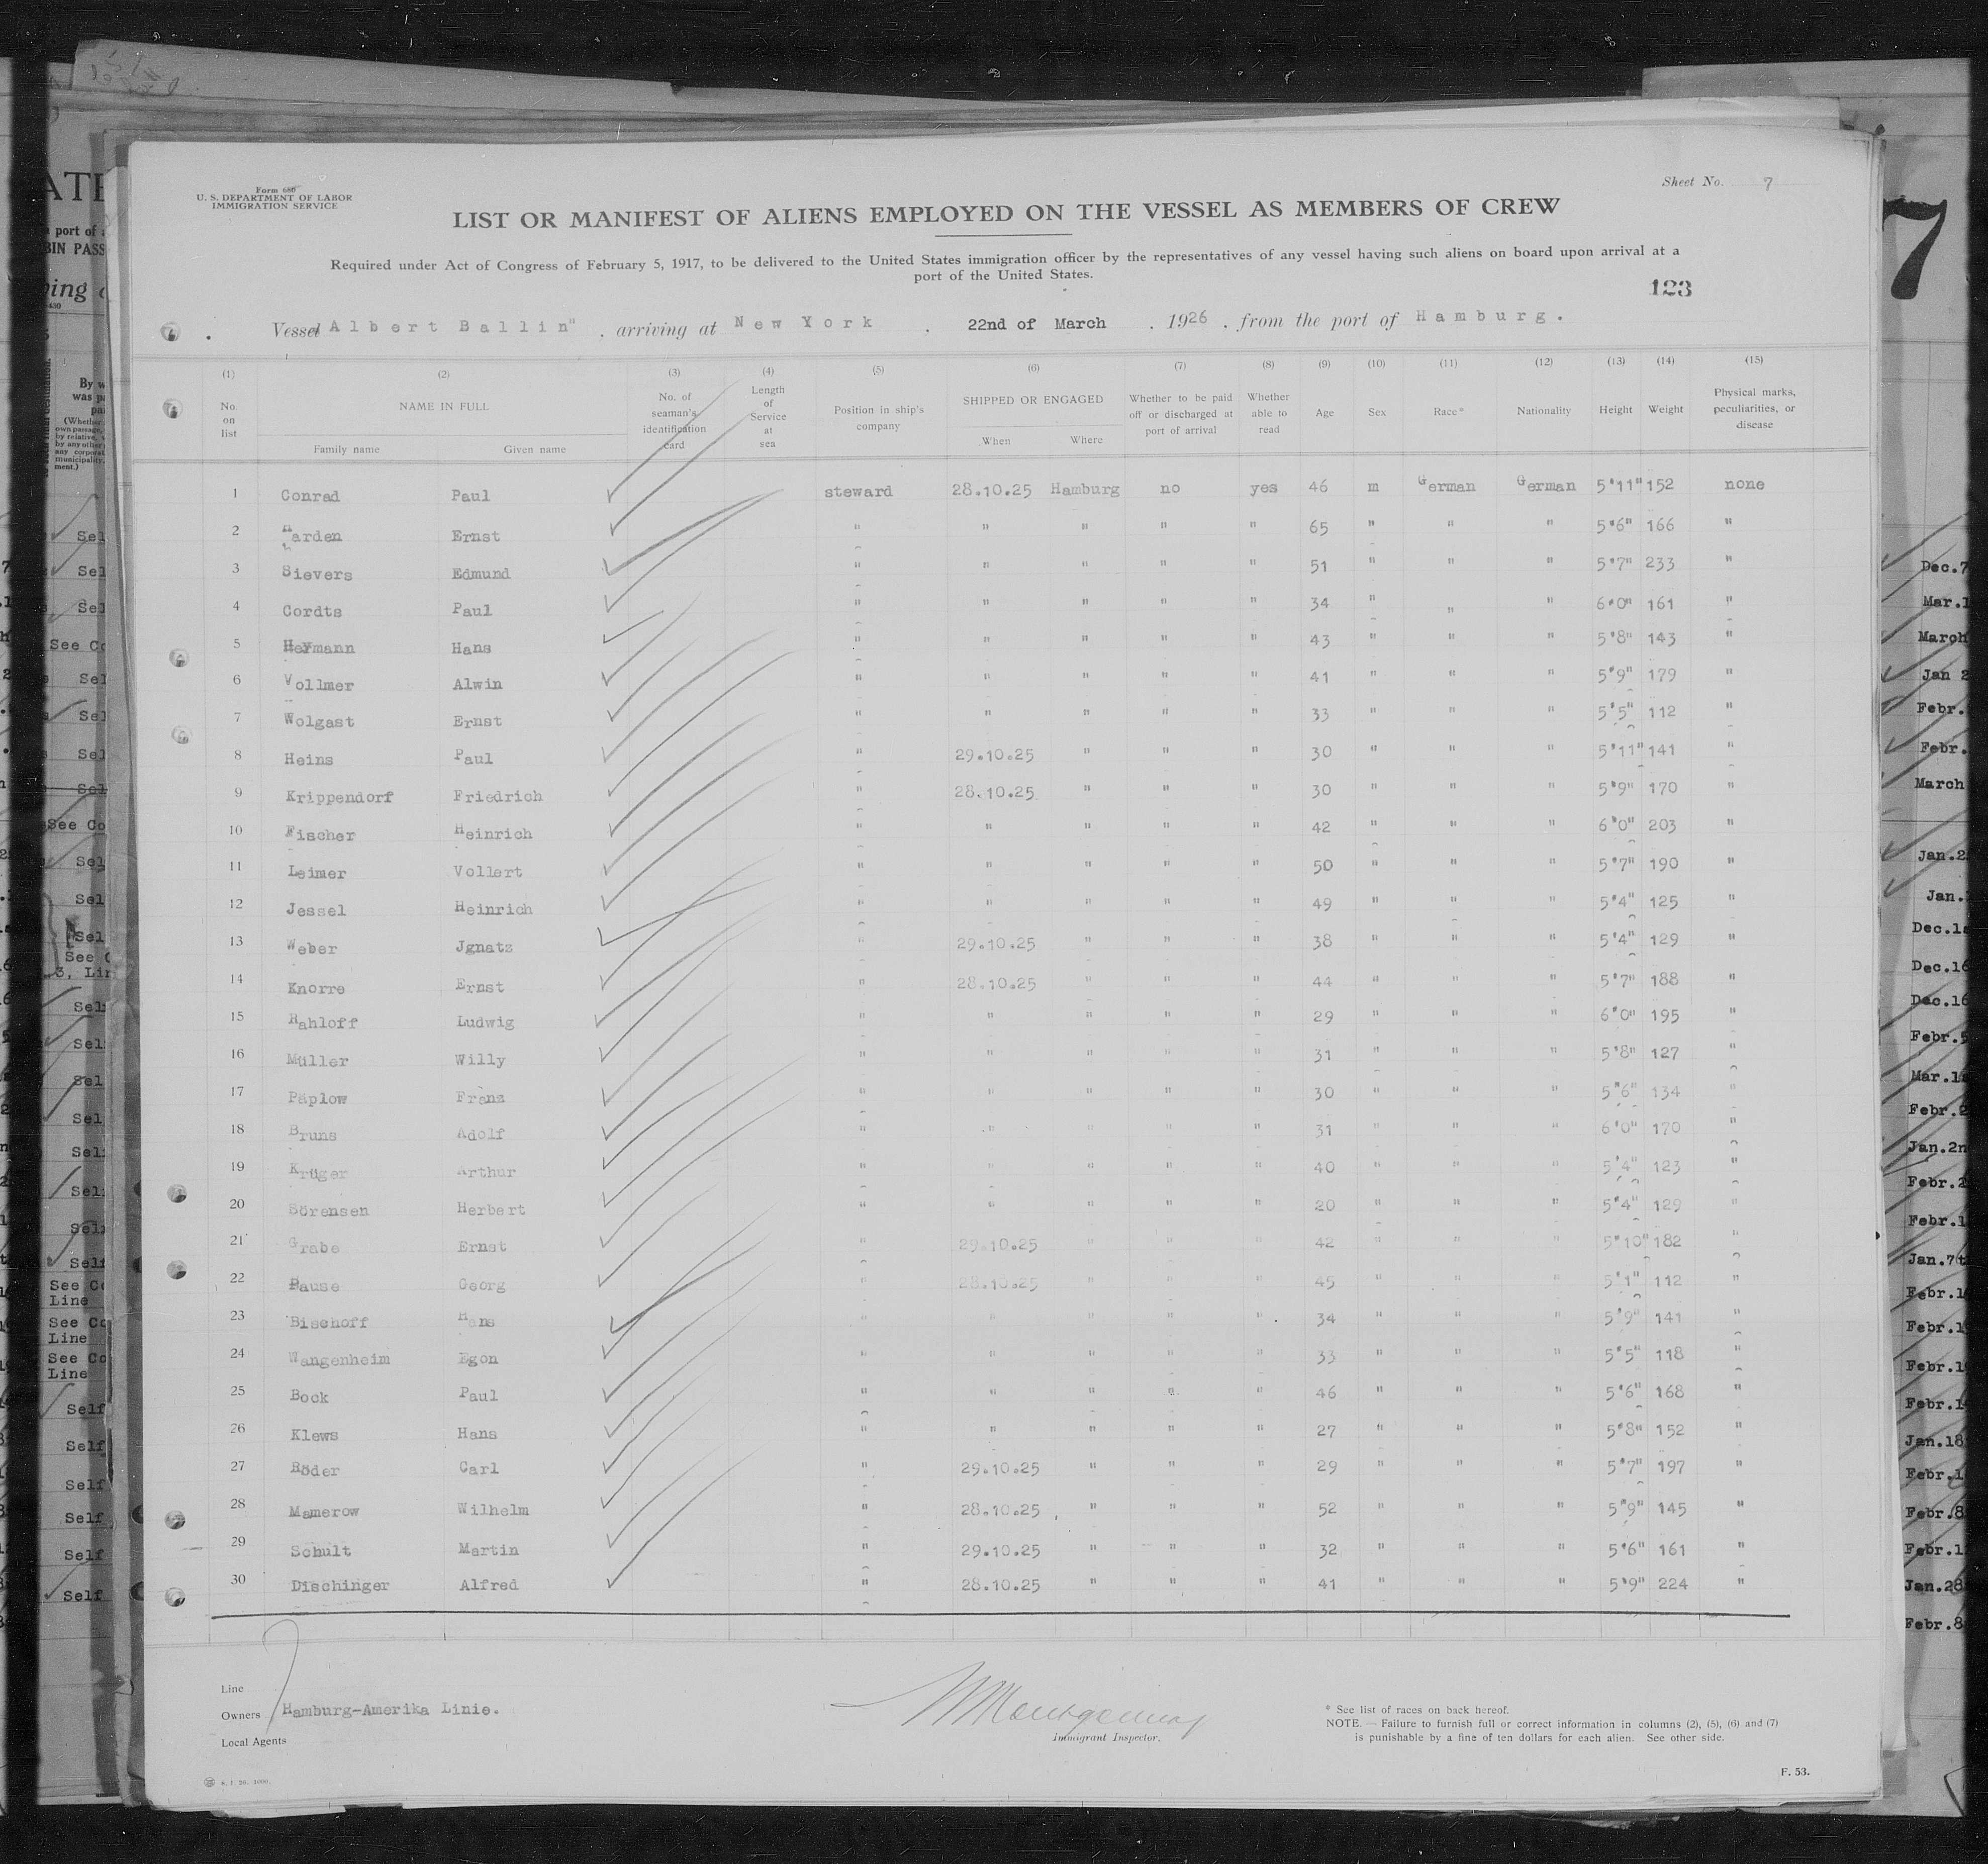 Form 680
U. S. DEPARTMENT OF LABOR
IMMIGRATION SERVICE
Sheet No. 7
LIST OR MANIFEST OF ALIENS EMPLOYED ON THE VESSEL AS MEMBERS OF CREW
Required under Act of Congress of February 5, 1917, to be delivered to the United States immigration officer by the representatives of any vessel having such aliens on board upon arrival at a
port of the United States.
123
Vessel Albert Ballin" , arriving at New York , 22nd of March , 1926 , from the port of Hamburg.
(1) (2) (3) (4) (5) (6) (7) (8) (9) (10) (11) (12) (13) (14) (15)
No. on list NAME IN FULL Family name Given name No. of seaman's identification card Length of Service at sea Position in ship's company SHIPPED OR ENGAGED When Where Whether to be paid off or discharged at port of arrival Whether able to read Age Sex Race* Nationality Height Weight Physical marks, peculiarities, or disease
1 Conrad Paul steward 28.10.25 Hamburg no yes 46 m German German 5'11" 152 none
2 Harden Ernst " " " " " 65 " " " 5'6" 166 "
3 Sievers Edmund " " " " " 51 " " " 5'7" 233 "
4 Cordts Paul " " " " " 34 " " " 6'0" 161 "
5 Heymann Hans " " " " " 43 " " " 5'8" 143 "
6 Vollmer Alwin " " " " " 41 " " " 5'9" 179 "
7 Wolgast Ernst " " " " " 33 " " " 5'5" 112 "
8 Heins Paul " 29.10.25 " " " 30 " " " 5'11" 141 "
9 Krippendorf Friedrich " 28.10.25 " " " 30 " " " 5'9" 170 "
10 Fischer Heinrich " " " " " 42 " " " 6'0" 203 "
11 Leimer Vollert " " " " " 50 " " " 5'7" 190 "
12 Jessel Heinrich " " " " " 49 " " " 5'4" 125 "
13 Weber Jgnatz " 29.10.25 " " " 38 " " " 5'4" 129 "
14 Knorre Ernst " 28.10.25 " " " 44 " " " 5'7" 188 "
15 Rahloff Ludwig " " " " " 29 " " " 6'0" 195 "
16 Müller Willy " " " " " 31 " " " 5'8" 127 "
17 Päplow Franz " " " " " 30 " " " 5'6" 134 "
18 Bruns Adolf " " " " " 31 " " " 6'0" 170 "
19 Krüger Arthur " " " " " 40 " " " 5'4" 123 "
20 Sörensen Herbert " " " " " 20 " " " 5'4" 129 "
21 Grabe Ernst " 29.10.25 " " " 42 " " " 5'10" 182 "
22 Pause Georg " 28.10.25 " " " 45 " " " 5'1" 112 "
23 Bischoff Hans " " " " " 34 " " " 5'9" 141 "
24 Wangenheim Egon " " " " " 33 " " " 5'5" 118 "
25 Bock Paul " " " " " 46 " " " 5'6" 168 "
26 Klews Hans " " " " " 27 " " " 5'8" 152 "
27 Röder Carl " 29.10.25 " " " 29 " " " 5'7" 197 "
28 Mamerow Wilhelm " 28.10.25 " " " 52 " " " 5'9" 145 "
29 Schult Martin " 29.10.25 " " " 32 " " " 5'6" 161 "
30 Dischinger Alfred " 28.10.25 " " " 41 " " " 5'9" 224 "
Line
Owners Hamburg-Amerika Linie.
Local Agents
Montgomery
immigrant Inspector.
* See list of races on back hereof.
NOTE. — Failure to furnish full or correct information in columns (2), (5), (6) and (7)
is punishable by a fine of ten dollars for each alien. See other side.
F. 53.